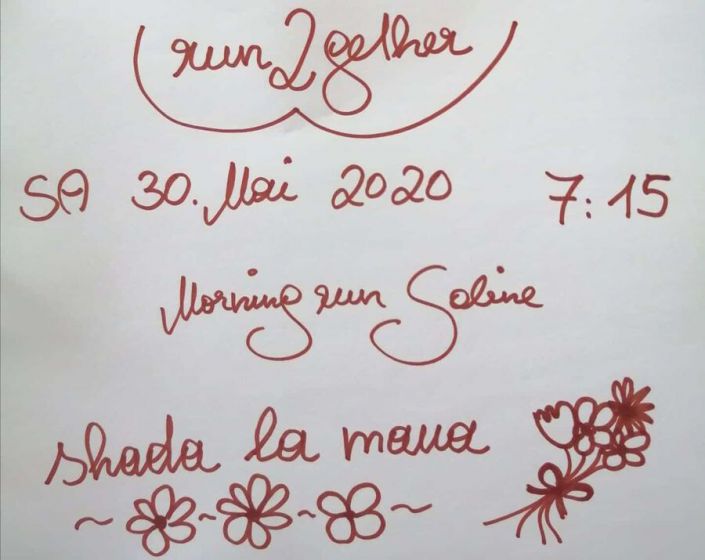 run2gether
SA 30. Mai 2020 7:15
Morning run Sabine
shada la maua